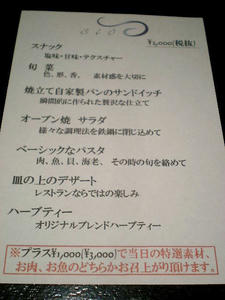 sio
¥2,000(税抜)
スナック
塩味・甘味・テクスチャー
旬 菜
色、形、香、 素材感を大切に
焼立て自家製パンのサンドイッチ
瞬間的に作られた贅沢な仕立て
オーブン焼 サラダ
様々な調理法を鉄鍋に閉じ込めて
ベーシックなパスタ
肉、魚、貝、海老、その時の旬を絡めて
皿の上のデザート
レストランならではの楽しみ
ハーブティー
オリジナルブレンドハーブティー
※プラス¥1,000(¥3,000)で当日の特選素材、
お肉、お魚のどちらかお召上がり頂けます。